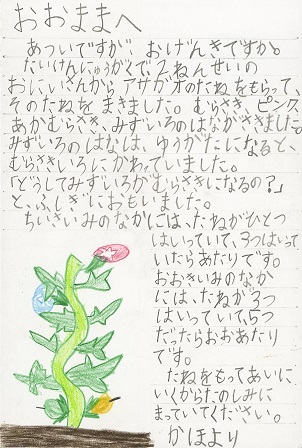 おおままへ
あついですが、おげんきですか。
たいけんにゅうがくで、2ねんせいの
おにいさんからアサガオのたねをもらって、
そのたねをまきました。むらさき、ピンク、
あかむらさき、みずいろのはながさきました。
みずいろのはなは、ゆうがたになると、
むらさきいろにかわっていました。
「どうしてみずいろがむらさきになるの?」
と、ふしぎにおもいました。
ちいさいみのなかには、たねがひとつ
はいっていて、3つはいって
いたらあたりです。
おおきいみのなか
には、たねが3つ
はいっていて、5つ
だったらおおあたり
です。
たねをもってあいに
いくからたのしみに
まっていてください。
かほより